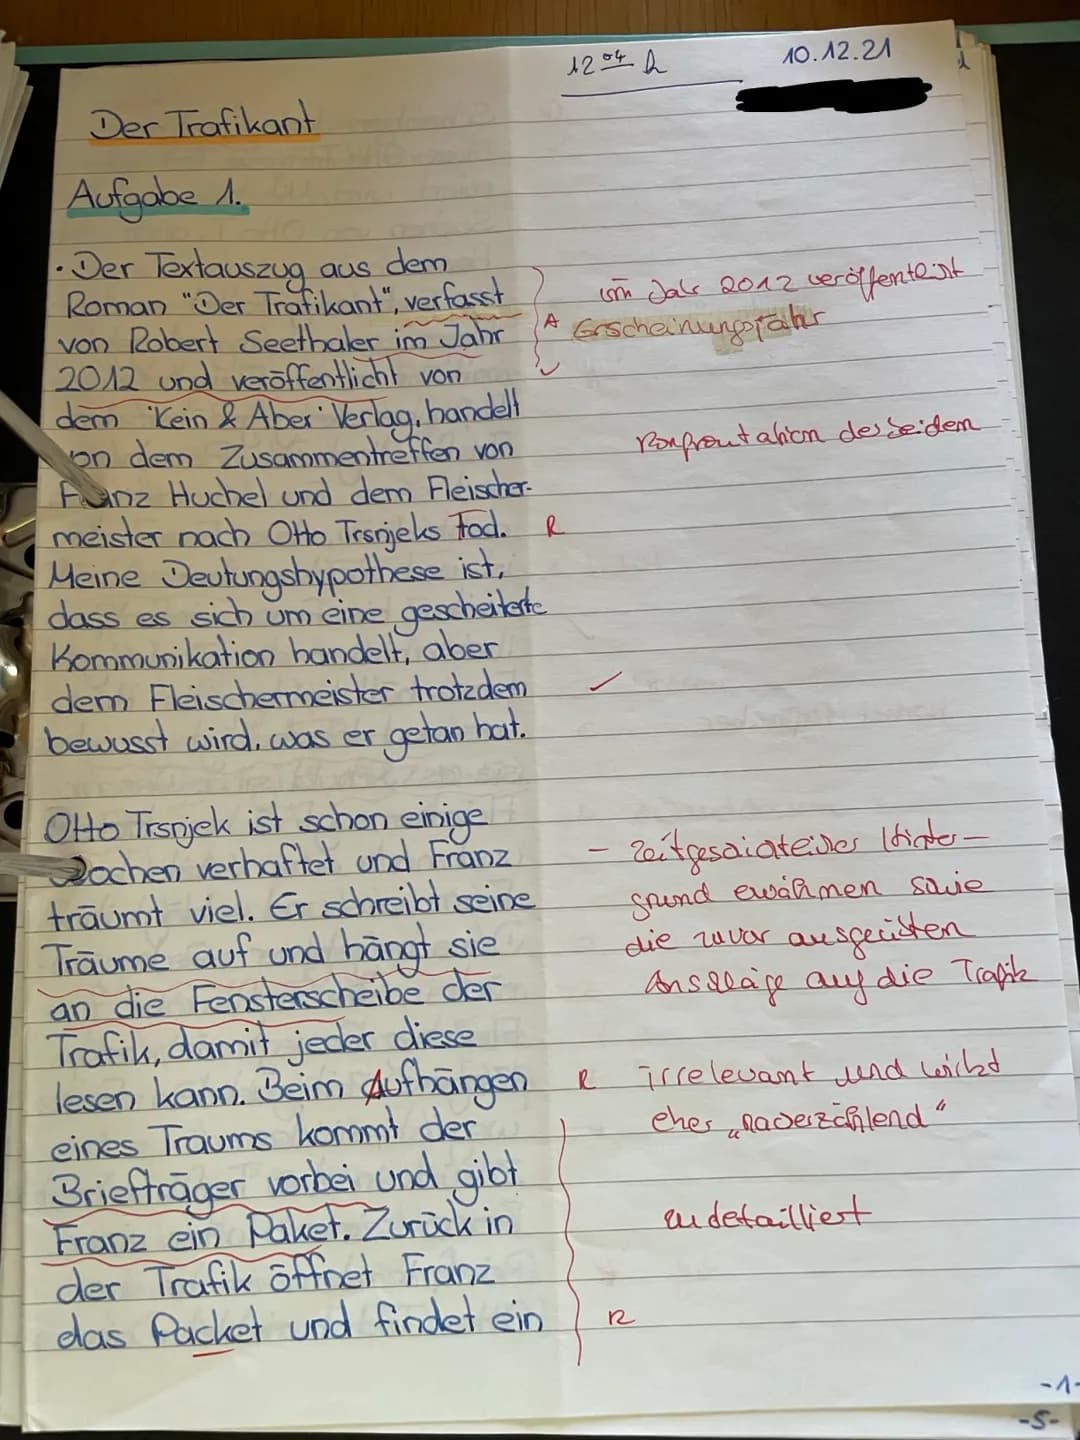 12 04 h 10.12.21
Der Trafikant
Aufgabe 1.
· Der Textauszug aus dem
Roman "Der Trafikant", verfasst
von Robert Seethaler im Jahr
2012 und veröffentlicht von
dem 'Kein & Aber' Verlag, handelt
von dem Zusammentreffen von
Franz Huchel und dem Fleischer-
meister nach Otto Trsnjeks Tod.
Meine Deutungshypothese ist,
dass es sich um eine gescheiterte
Kommunikation handelt, aber
dem Fleischermeister trotzdem
bewusst wird, was er getan hat.
Otto Trsnjek ist schon einige
Wochen verhaftet und Franz
träumt viel. Er schreibt seine
Träume auf und hängt sie
an die Fensterscheibe der
Trafik, damit jeder diese
lesen kann. Beim Aufhängen
eines Traums kommt der
Briefträger vorbei und gibt
Franz ein Paket. Zurück in
der Trafik öffnet Franz
das Packet und findet ein
im Jahr 2012 veröffentlicht
A Erscheinungsjahr
Konfrontation der beiden
R
- zeitgeschichtlicher Hinter-
grund erwähnen sowie
die zuvor ausgeübten
Anschläge auf die Trafik
R irrelevant und wirkt
eher „nacherzählend"
zu detailliert
R
-1-
-5-